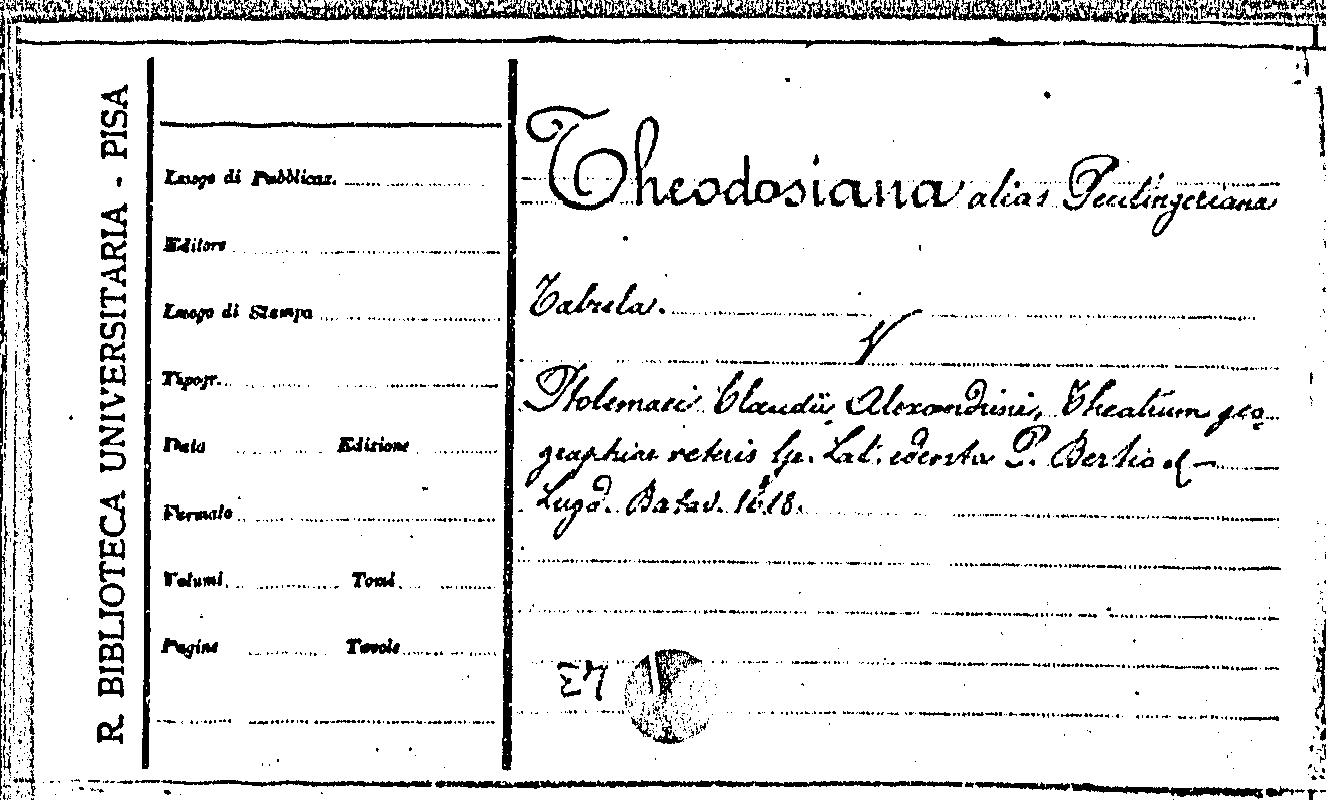 R. BIBLIOTECA UNIVERSITARIA - PISA
Luogo di Pubblicaz.
Editore
Luogo di Stampa
Tipogr.
Data Edizione
Formato
Volumi Tomi
Pagine Tavole
Theodosiana alias Peutingeriana
Tabula.
V
Ptolemaei Claudii Alexandrini, Theatrum geo-
graphiae veteris Gr. Lat. edente P. Bertio
Lugd. Batav. 1618.